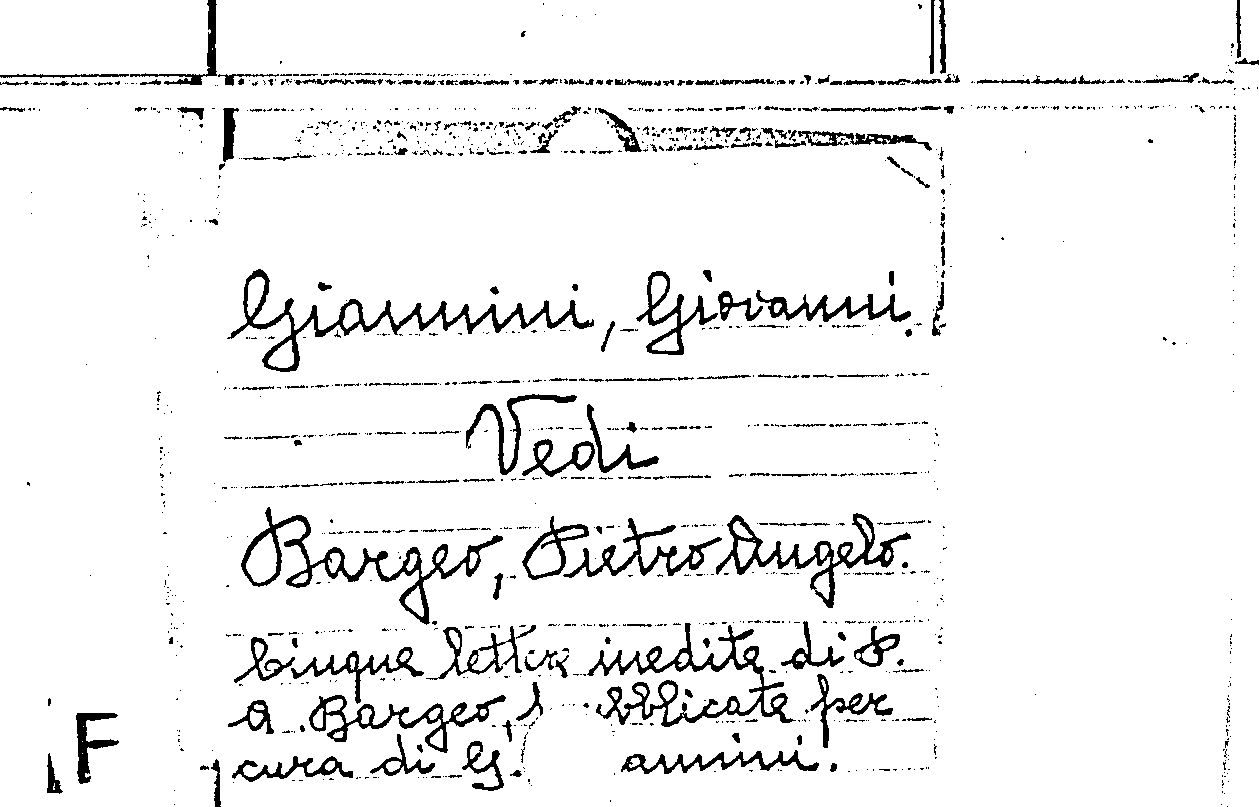 Giannini, Giovanni.
Vedi
Bargeo, Pietro Angelo.
Cinque lettere inedite di P.
A. Bargeo, bblicate per
cura di G. annini.
F